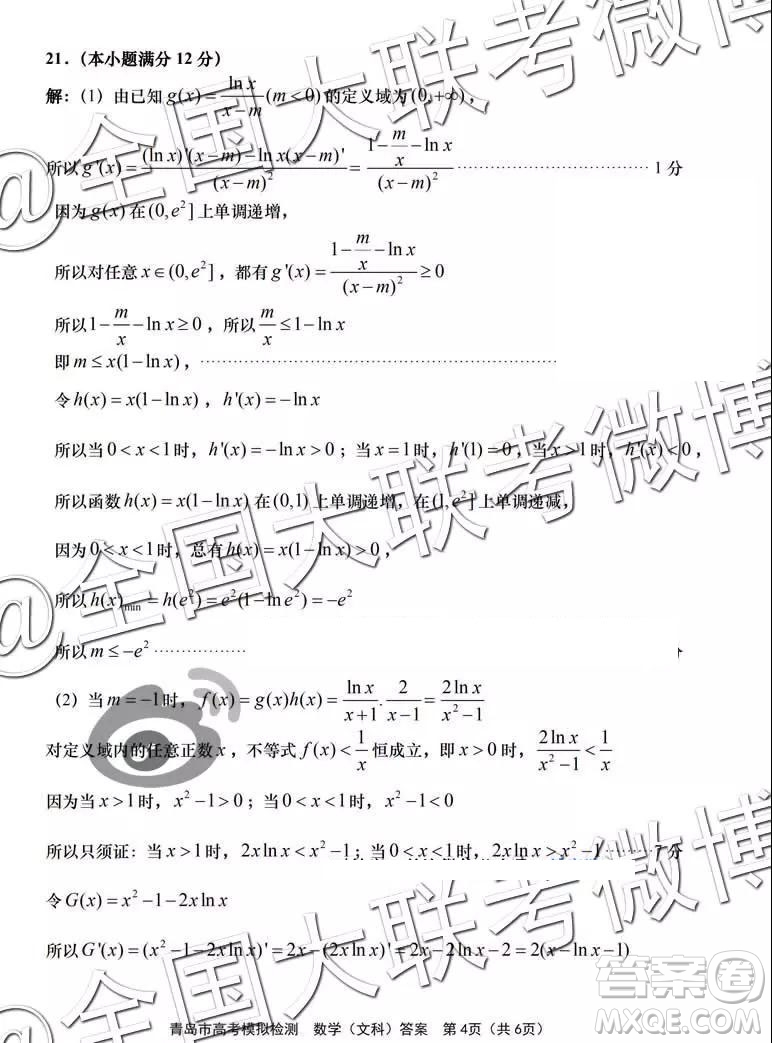 21.（本小题满分 12 分）
解：(1) 由已知 g(x) = \frac{\ln x}{x-m} (m < 0) 的定义域为 (0, +∞)，
所以 g'(x) = \frac{(\ln x)'(x-m) - \ln x(x-m)'}{(x-m)^2} = \frac{1 - \frac{m}{x} - \ln x}{(x-m)^2} ………………………… 1 分
因为 g(x) 在 (0, e^2] 上单调递增，
所以对任意 x ∈ (0, e^2]，都有 g'(x) = \frac{1 - \frac{m}{x} - \ln x}{(x-m)^2} ≥ 0
所以 1 - \frac{m}{x} - \ln x ≥ 0，所以 \frac{m}{x} ≤ 1 - \ln x
即 m ≤ x(1 - \ln x)，…………………………………………
令 h(x) = x(1 - \ln x)，h'(x) = -\ln x
所以当 0 < x < 1 时，h'(x) = -\ln x > 0；当 x = 1 时，h'(1) = 0，当 x > 1 时，h'(x) < 0，
所以函数 h(x) = x(1 - \ln x) 在 (0,1) 上单调递增，在 (1, e^2] 上单调递减，
因为 0 < x < 1 时，总有 h(x) = x(1 - \ln x) > 0，
所以 h(x)_{min} = h(e^2) = e^2(1 - \ln e^2) = -e^2
所以 m ≤ -e^2 ………………
(2) 当 m = -1 时，f(x) = g(x)h(x) = \frac{\ln x}{x+1} . \frac{2}{x-1} = \frac{2\ln x}{x^2-1}
对定义域内的任意正数 x，不等式 f(x) < \frac{1}{x} 恒成立，即 x > 0 时，\frac{2\ln x}{x^2-1} < \frac{1}{x}
因为当 x > 1 时，x^2 - 1 > 0；当 0 < x < 1 时，x^2 - 1 < 0
所以只须证：当 x > 1 时，2x\ln x < x^2 - 1；当 0 < x < 1 时，2x\ln x > x^2 - 1 ……… 7 分
令 G(x) = x^2 - 1 - 2x\ln x
所以 G'(x) = (x^2 - 1 - 2x\ln x)' = 2x - (2x\ln x)' = 2x - 2\ln x - 2 = 2(x - \ln x - 1)
青岛市高考模拟检测 数学（文科）答案 第 4页（共 6页）
@全国大联考微博
@全国大联考微博
@全国大联考微博
答案卷